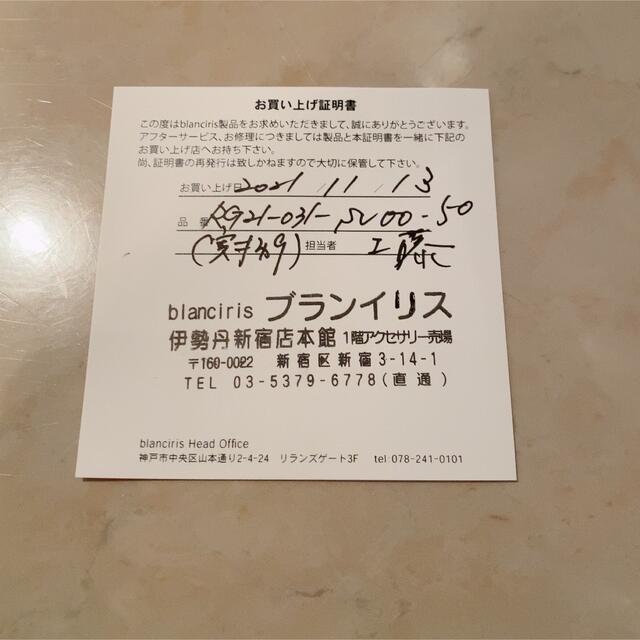 お買い上げ証明書
この度はblanciris製品をお求めいただきまして、誠にありがとうございます。
アフターサービス、お修理につきましては製品と本証明書を一緒に下記の
お買い上げ店へお持ち下さい。
尚、証明書の再発行は致しかねますので大切に保管して下さい。
お買い上げ日 2021 / 11 / 13
品 番 RG21-031-SV00-50
担当者 工藤
blanciris ブランイリス
伊勢丹新宿店本館 1階アクセサリー売場
〒160-0022 新宿区新宿3-14-1
TEL 03-5379-6778(直通)
blanciris Head Office
神戸市中央区山本通り2-4-24 リランズゲート3F tel:078-241-0101